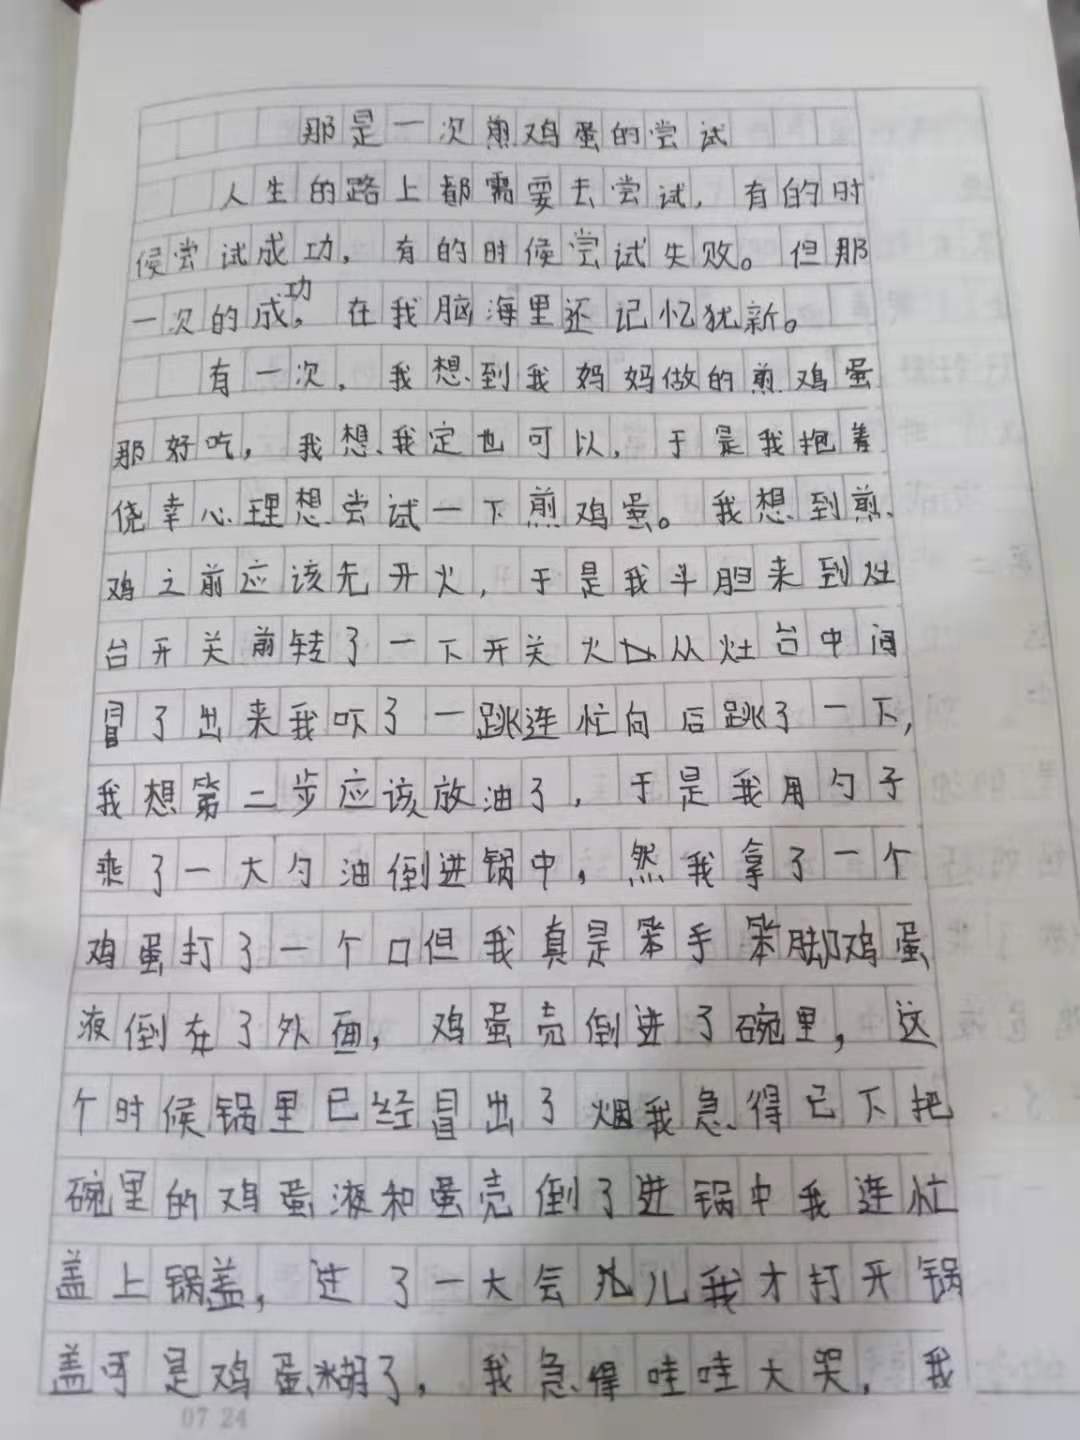 那是一次煎鸡蛋的尝试
人生的路上都需要去尝试，有的时
候尝试成功，有的时候尝试失败。但那
一次的成功，在我脑海里还记忆犹新。
有一次，我想到我妈妈做的煎鸡蛋
那好吃，我想我定也可以，于是我抱着
侥幸心理想尝试一下煎鸡蛋。我想到煎
鸡之前应该先开火，于是我斗胆来到灶
台开关前转了一下开关火从灶台中间
冒了出来我吓了一跳连忙向后跳了一下，
我想第二步应该放油了，于是我用勺子
乘了一大勺油倒进锅中，然我拿了一个
鸡蛋打了一个口但我真是笨手笨脚鸡蛋
液倒在了外面，鸡蛋壳倒进了碗里，这
个时候锅里已经冒出了烟我急得已下把
碗里的鸡蛋液和蛋壳倒了进锅中我连忙
盖上锅盖，过了一大会儿我才打开锅
盖可是鸡蛋糊了，我急得哇哇大哭，我
07 24